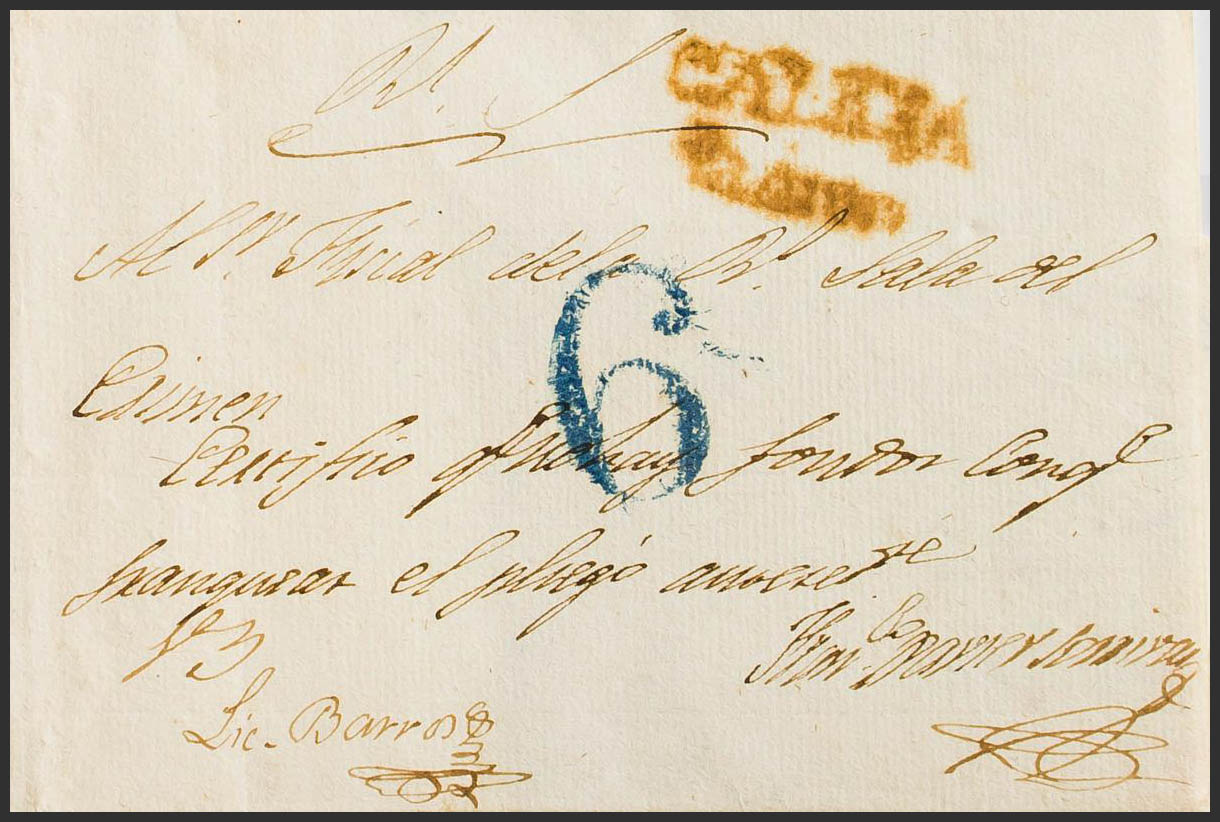 Rl. S
GALICIA
Al Sr. Fiscal dela Rl. Sala del
6
Crimen
Certifico q no hay fondos Conq e
franquear el pliegó
Vo B
Lic. Barros